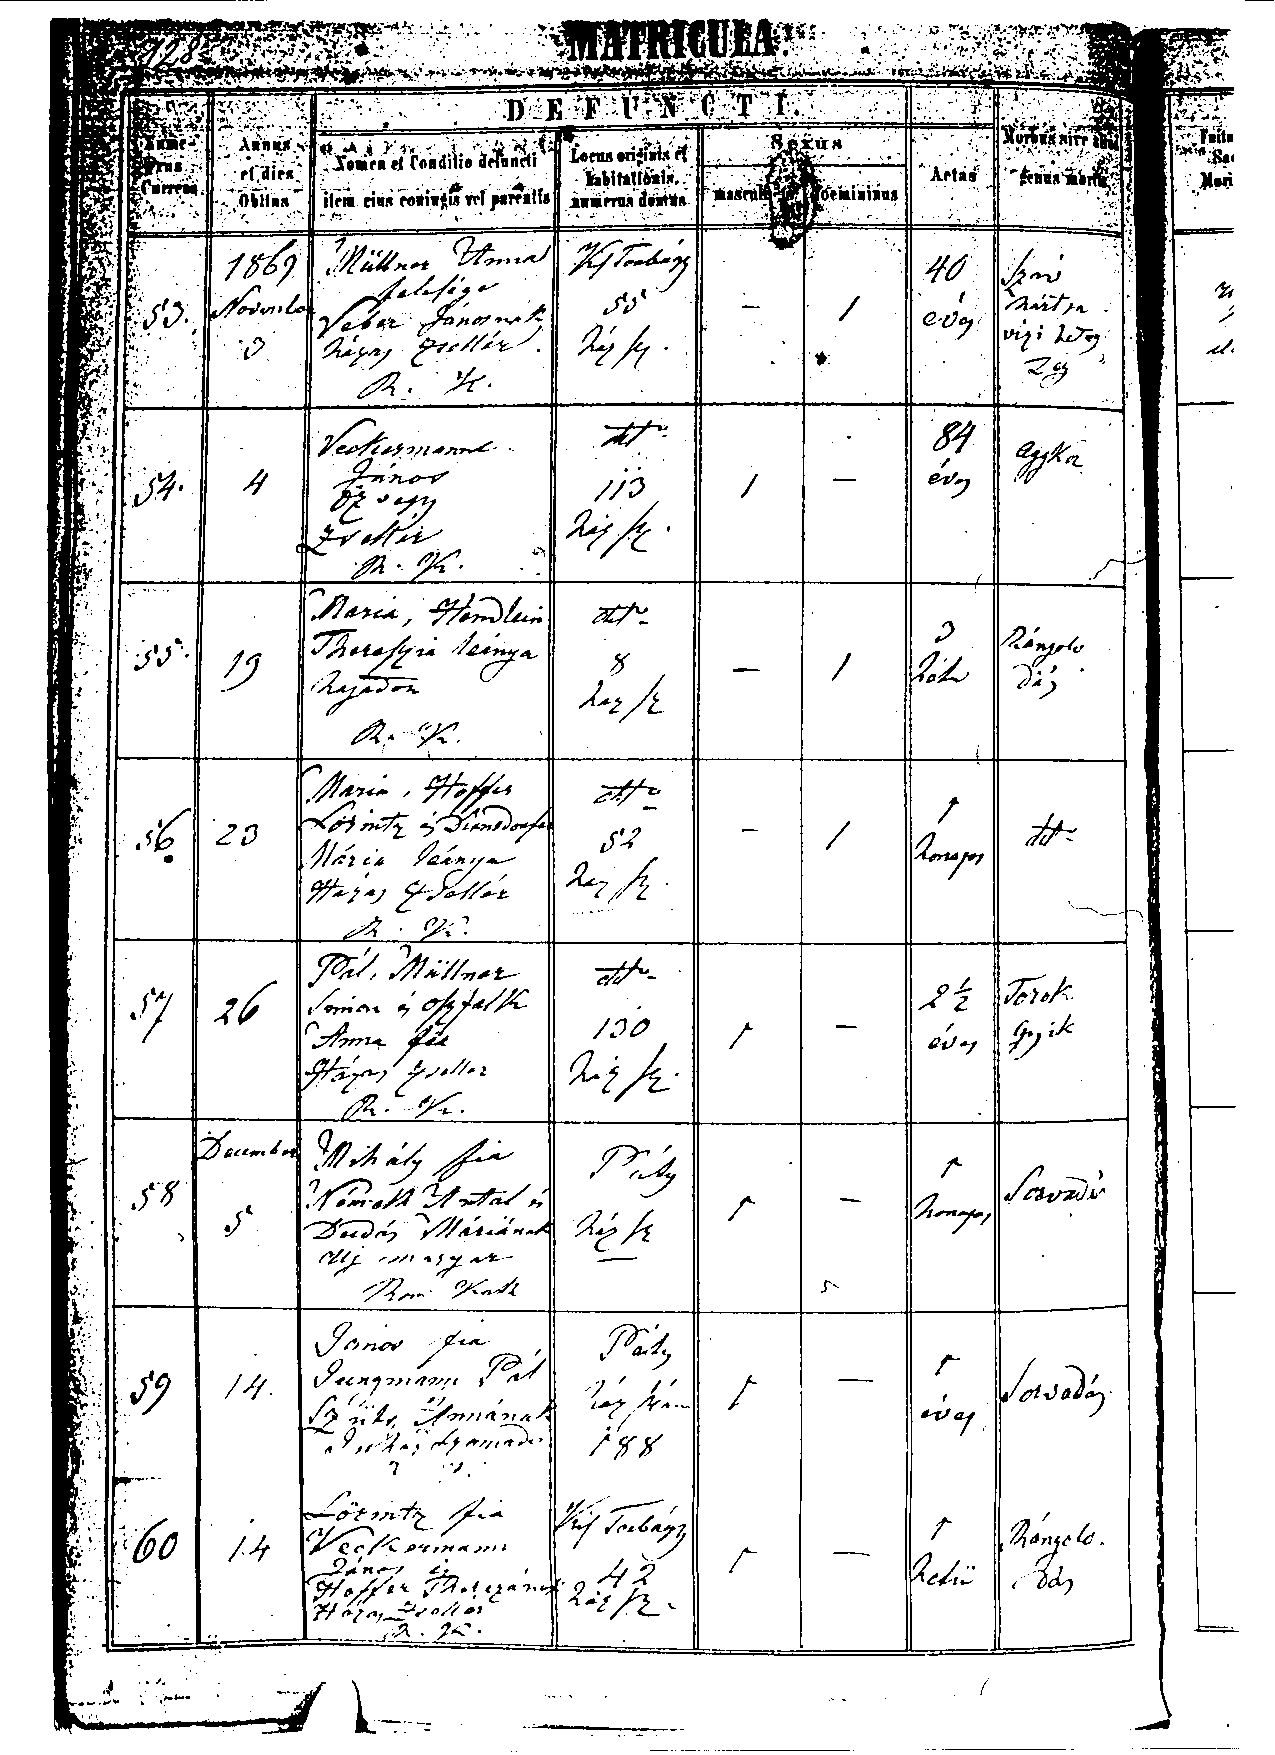 728
MATRICULA.
DEFUNCTI.
Numerus Currens
Annus et dies Obitus
Nomen et Conditio defuncti item eius coniugis vel parentis
Locus originis et habitationis, numerus domus
Sexus
masculinus
foemininus
Aetas
Morbus sive
genus mortis
53.
1869
November
3
Müllner Anna
felesége
Veber Jánosnak
házas zsellér.
R. K.
Kis Torbágy
55
ház sz.
—
1
40
éves
54.
4
Veckermann
János
özvegy
zsellér
R. K.
dtt
113
ház sz.
1
—
84
éves
aggkor
55.
19
Maria, Hendlein
Theresia leánya
hajadon
R. K.
dtt
8
ház sz
—
1
3
heti
Rángoló
dás
56.
23
Maria, Hoffer
Lörintz és
Mária leánya
Házas Zsellér
R. K.
dtt
52
ház sz.
—
1
1
honapos
dtt
57
26
Pál, Müllner
Simon és
Anna fia
Házas zsellér
R. K.
dtt
130
ház sz.
1
—
2 ½
éves
Torok
gyík
58
December
5
Mihály fia
Németh Antal és
Dudás Máriának
Uj magyar
Rom Kath
Páty
ház sz
—
1
—
1
honapos
Sorvadás
59
14.
János fia
Jungmann Pál
Szüts Annának
Páty
ház szám
188
1
—
1
éves
Sorvadás
60
14
Lörintz fia
Veckermann
János és
Hoffer Therezának
Házas Zsellér
R. K.
Kis Torbágy
42
ház sz.
1
—
1
hetü
Rángoló
dás